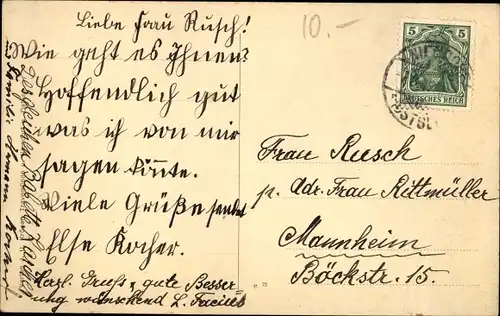 Liebe Frau Rusch!
Wie geht es Ihnen?
Hoffendlich gut
was ich von mir
sagen könnte.
Viele Grüße sendet
Else Kocher.
Herzl. Gruss u. gute Besser=
ung wünschend L. Facius
Desgleichen Babette
10.-
5 5
DEUTSCHES REICH
Frau Rusch
p. Adr. Frau Rittmüller
Mannheim
Böckstr. 15.